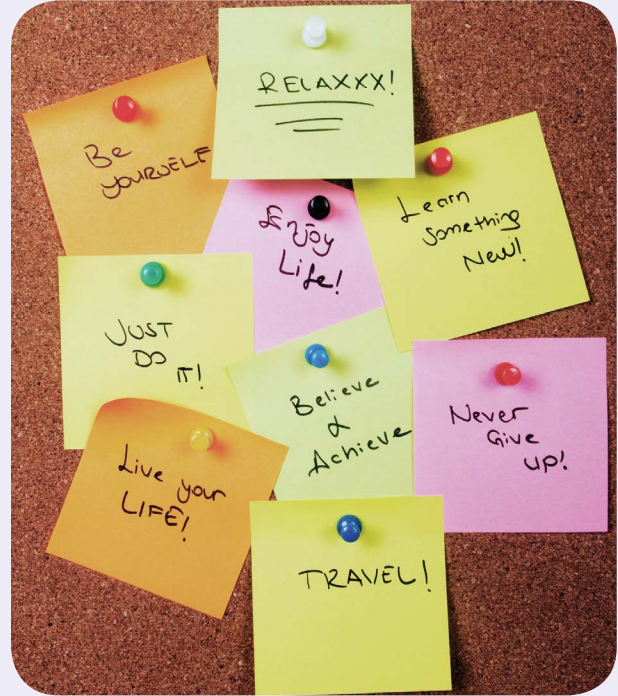 RELAXXX!
Be
YOURSELF
Enjoy
Life!
Learn
Something
New!
JUST
DO
IT!
Believe
&
Achieve
Never
Give
UP!
Live your
LIFE!
TRAVEL!